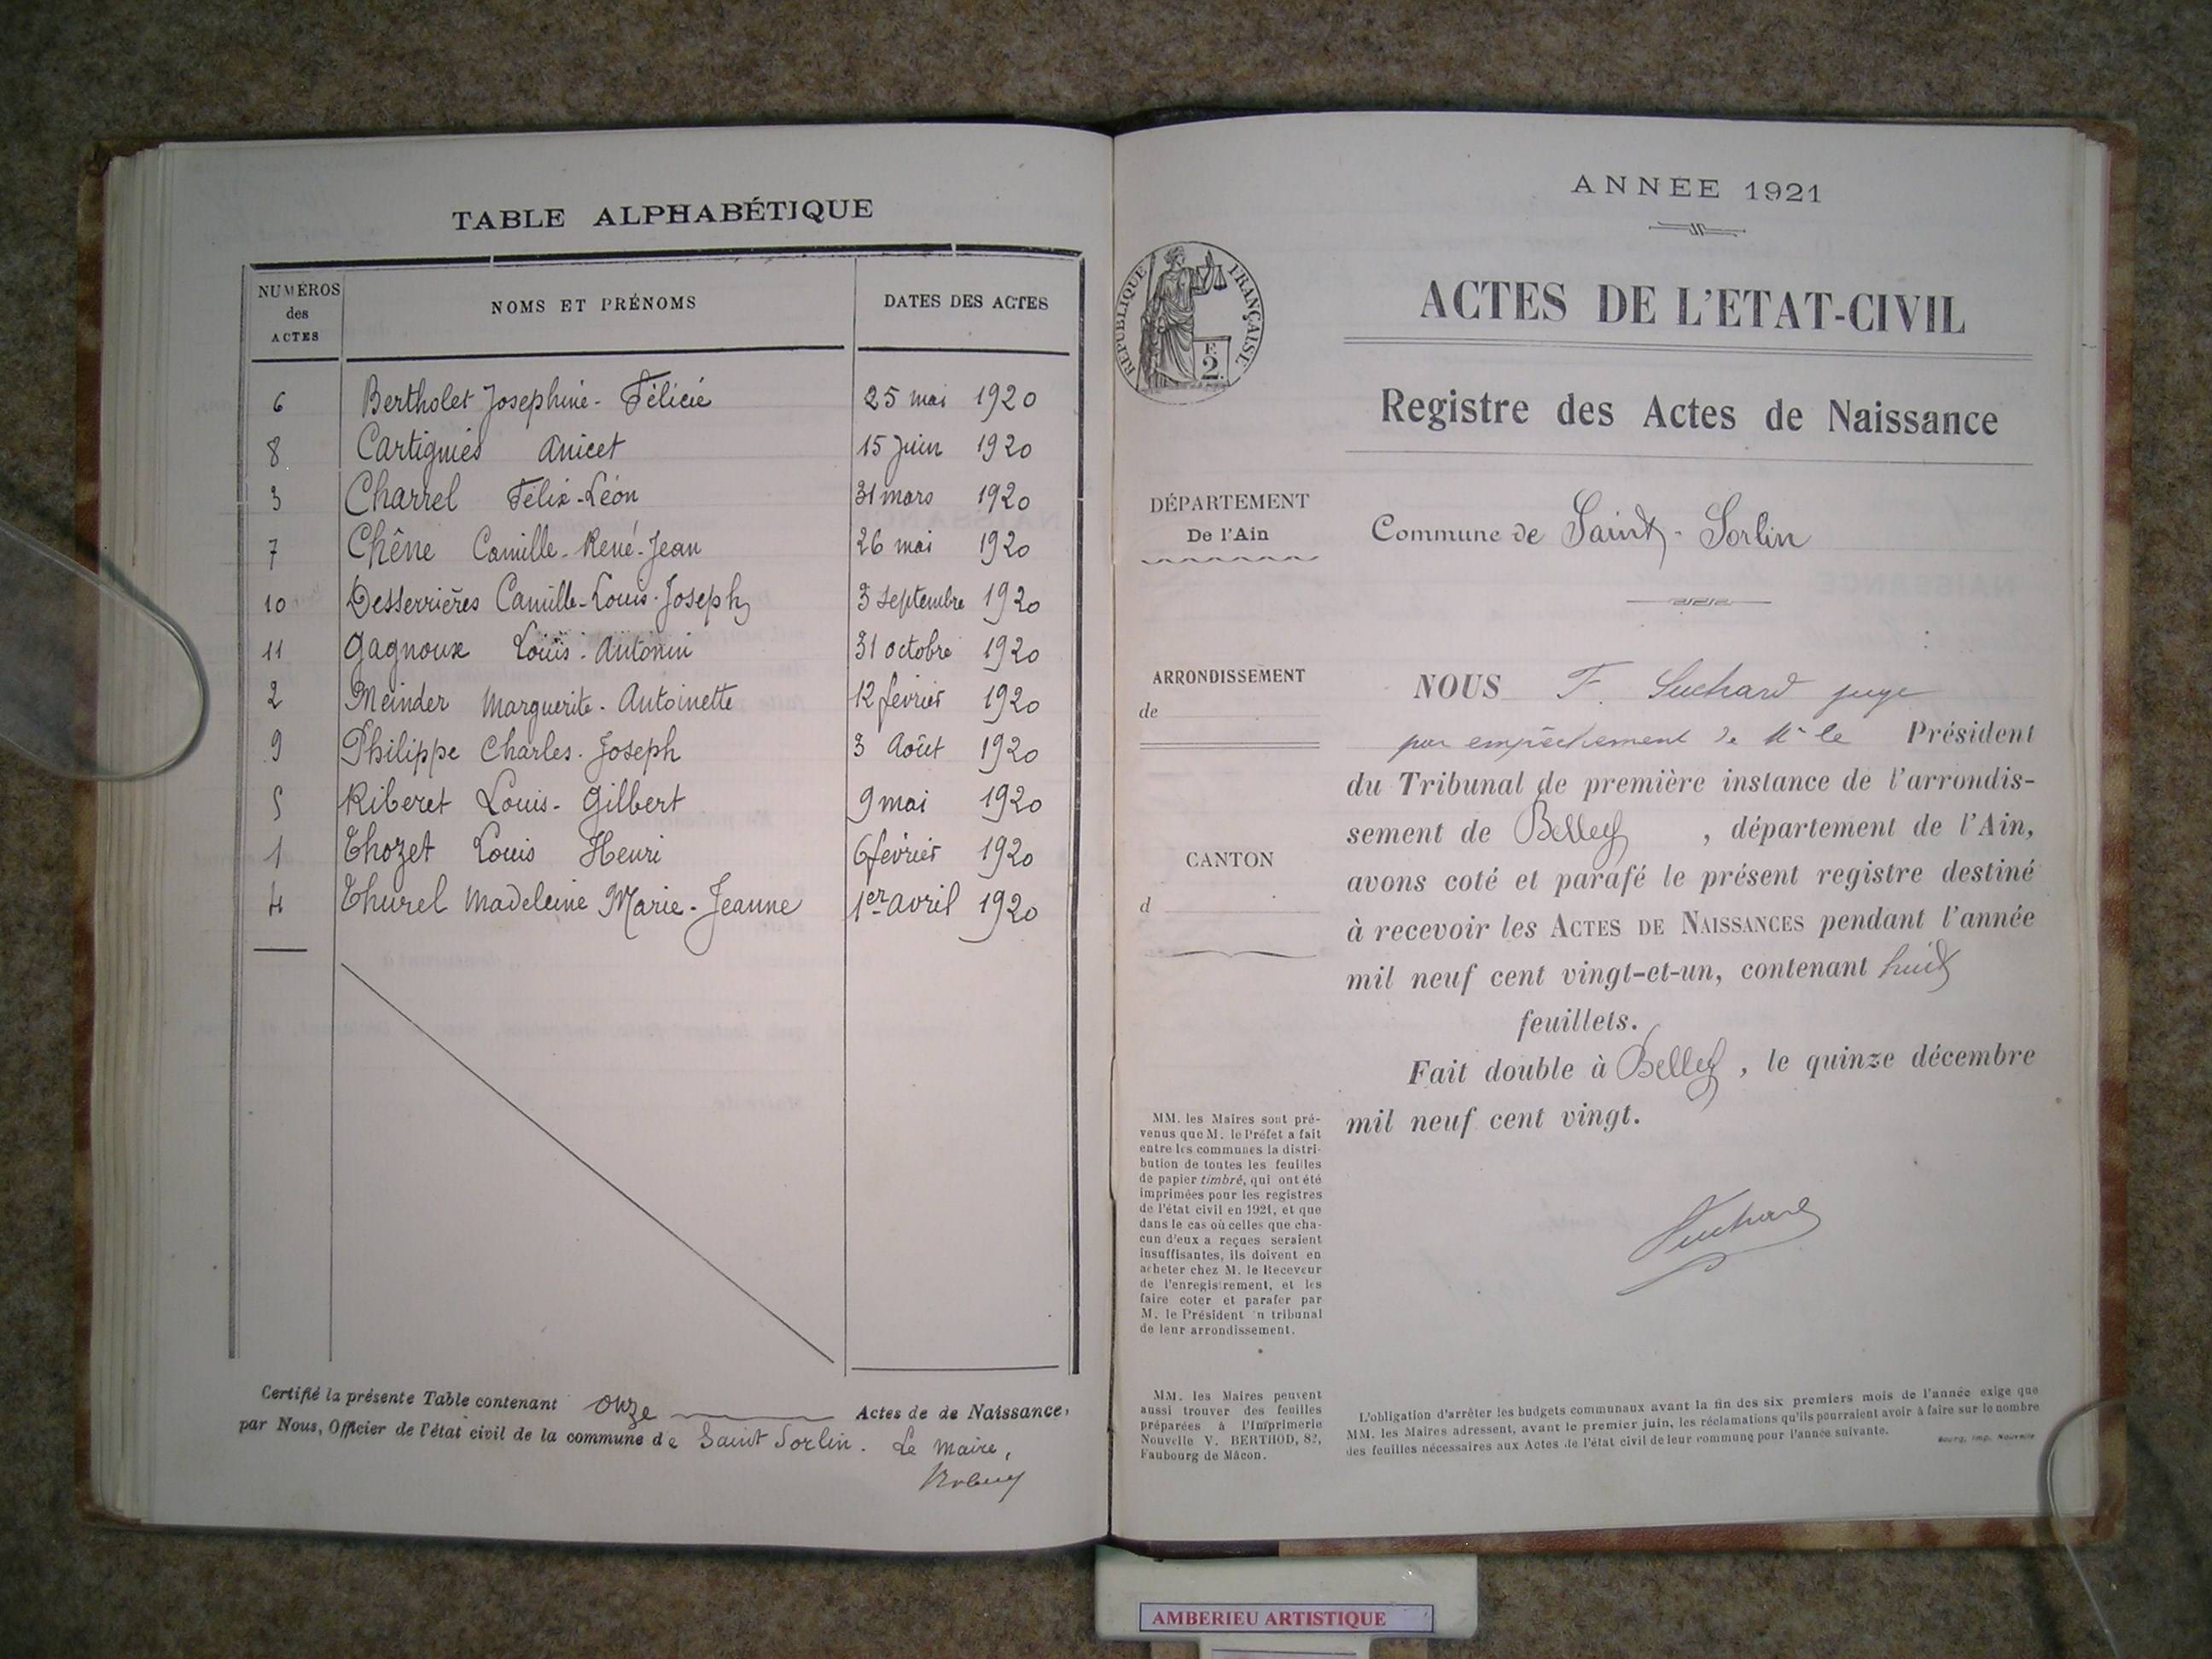 TABLE ALPHABÉTIQUE
NUMÉROS des ACTES NOMS ET PRÉNOMS DATES DES ACTES
6 Bertholet Josephine - Félicie 25 mai 1920
8 Cartigniés Anicet 15 Juin 1920
3 Charrel Félix-Léon 31 mars 1920
7 Chêne Camille-René-Jean 26 mai 1920
10 Desserrières Camille-Louis-Joseph 3 septembre 1920
11 Gagnoux Louis-Antonin 31 octobre 1920
2 Meinder Marguerite-Antoinette 12 février 1920
9 Philippe Charles-Joseph 3 Août 1920
5 Riberet Louis-Gilbert 9 mai 1920
1 Thozet Louis Henri 6 février 1920
4 Thurel Madeleine Marie-Jeanne 1er avril 1920
Certifié la présente Table contenant onze Actes de de Naissance,
par Nous, Officier de l'état civil de la commune de Saint Sorlin. Le Maire,
ANNEE 1921
REPUBLIQUE FRANÇAISE
F. 2.
ACTES DE L'ETAT-CIVIL
Registre des Actes de Naissance
DÉPARTEMENT
De l'Ain
Commune de Saint-Sorlin
ARRONDISSEMENT
de
CANTON
d
NOUS F. Suchard juge
par empêchement de Mr le Président
du Tribunal de première instance de l'arrondis-
sement de Belley, département de l'Ain,
avons coté et parafé le présent registre destiné
à recevoir les ACTES DE NAISSANCES pendant l'année
mil neuf cent vingt-et-un, contenant huit
feuillets.
Fait double à Belley, le quinze décembre
mil neuf cent vingt.
Suchard
MM. les Maires sont pré-
venus que M. le Préfet a fait
entre les communes la distri-
bution de toutes les feuilles
de papier timbré, qui ont été
imprimées pour les registres
de l'état civil en 1921, et que
dans le cas où celles que cha-
cun d'eux a reçues seraient
insuffisantes, ils doivent en
acheter chez M. le Receveur
de l'enregistrement, et les
faire coter et parafer par
M. le Président u tribunal
de leur arrondissement.
MM. les Maires peuvent
aussi trouver des feuilles
préparées à l'Imprimerie
Nouvelle V. BERTHOD, 82,
Faubourg de Mâcon.
L'obligation d'arrêter les budgets communaux avant la fin des six premiers mois de l'année exige que
MM. les Maires adressent, avant le premier juin, les réclamations qu'ils pourraient avoir à faire sur le nombre
des feuilles nécessaires aux Actes de l'état civil de leur commune pour l'année suivante.
Bourg, Imp. Nouvelle
AMBERIEU ARTISTIQUE